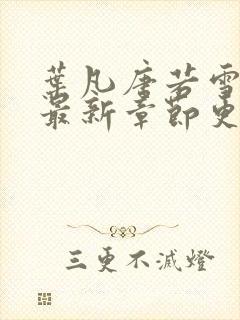 葉凡唐若雪
最新章節更
三更不滅燈